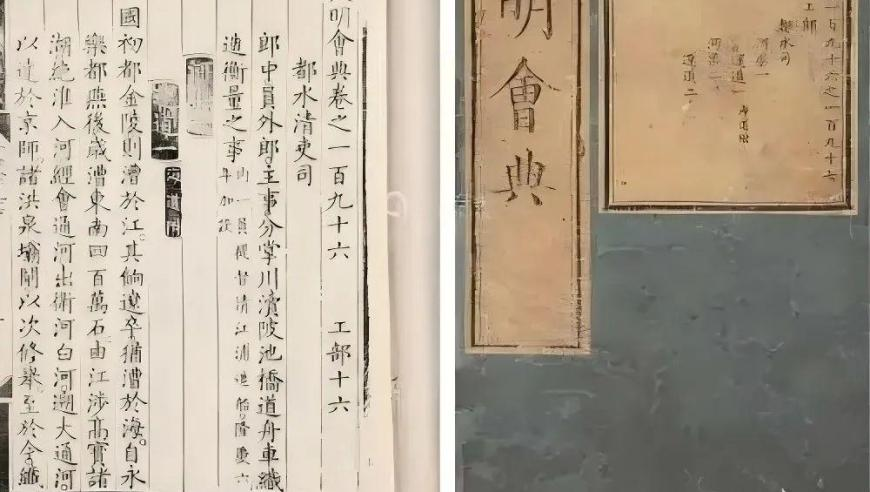 明會典卷之一百九十六 工部十六
都水清吏司
郎中員外郎主事分掌川瀆陂池橋道舟車織
造衡量之事
一員提督清江浦造船隆慶六
年加設
國初都金陵則漕於江。其餉遼卒猶漕於海。自永
樂都燕後歲漕東南四百萬石由江涉高寶諸
湖絶淮入河經會通河出衛河白河。遡大通河。
以達於京師。諸洪泉壩閘以次修舉。至於
明會典
一百九十六之一百九十七
工部
都水司
河渠一
運道一
河渠二
運道二